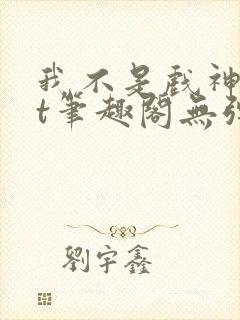 我不是戏神
t筆趣閣無弹
劉宇鑫